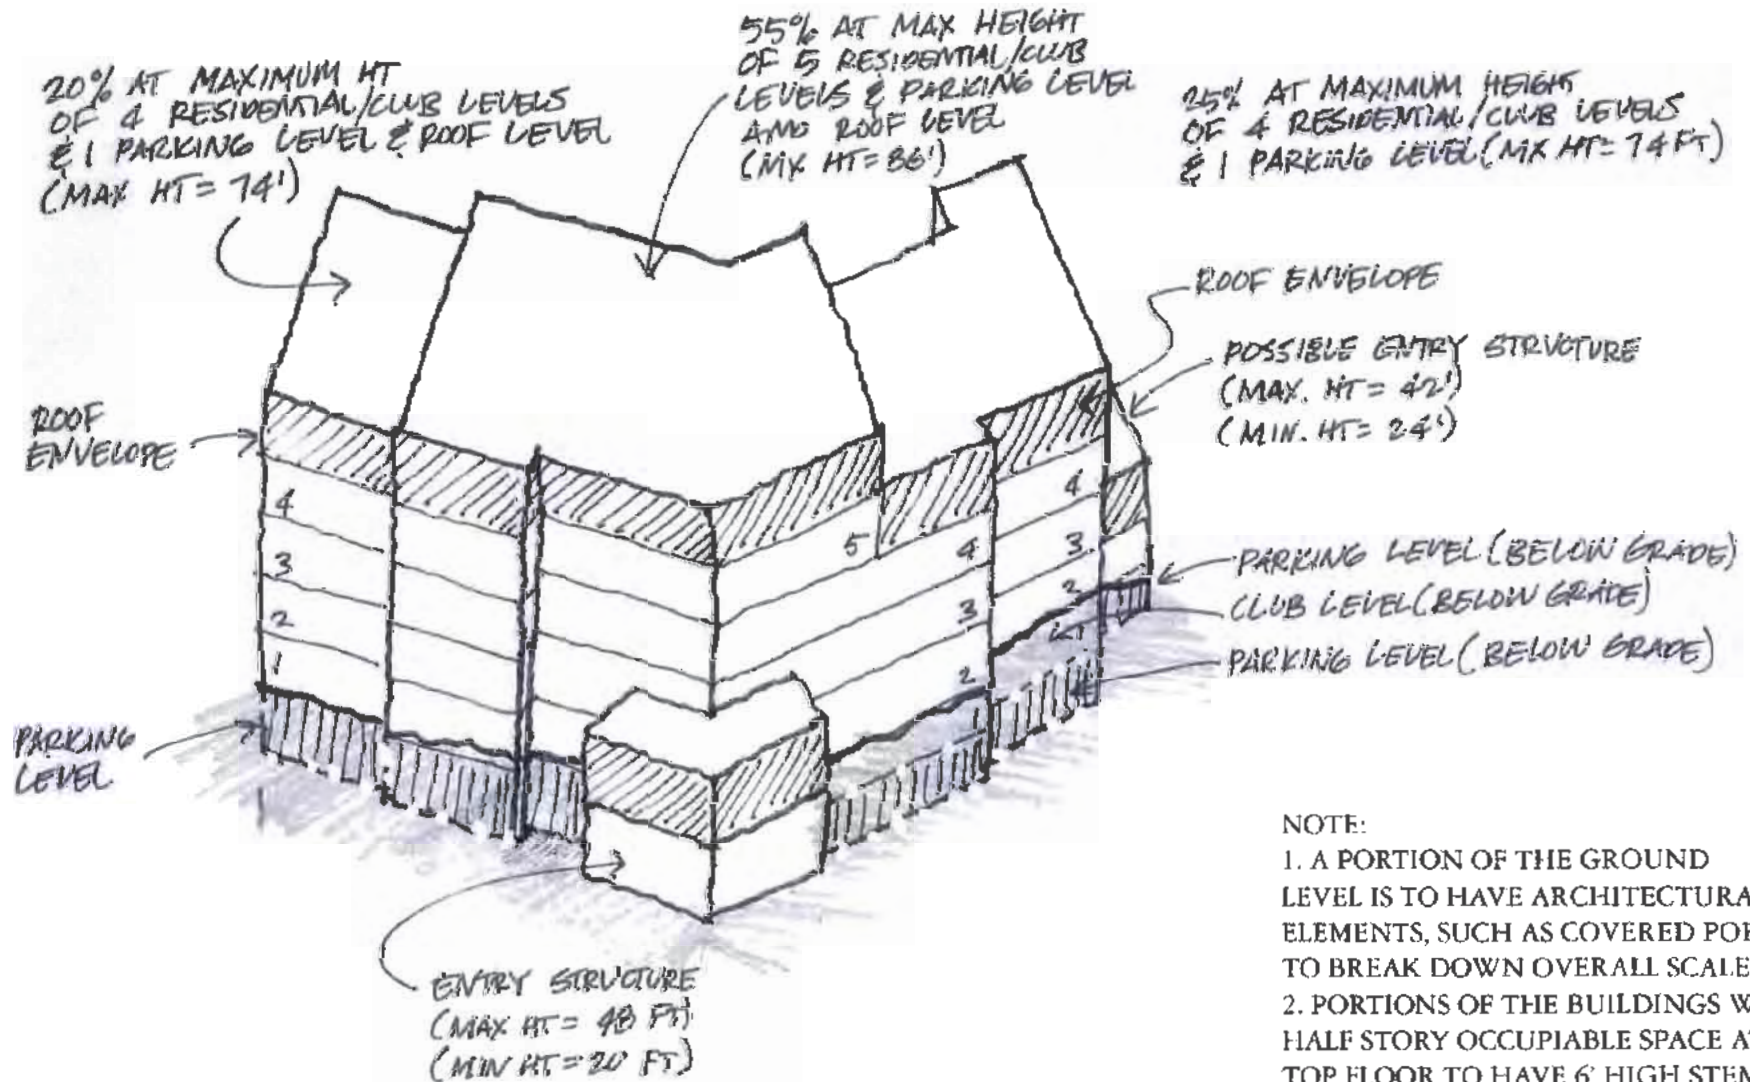 20% AT MAXIMUM HT
OF 4 RESIDENTIAL/CLUB LEVELS
& 1 PARKING LEVEL & ROOF LEVEL
(MAX HT = 74')
55% AT MAX HEIGHT
OF 5 RESIDENTIAL/CLUB
LEVELS & PARKING LEVEL
AND ROOF LEVEL
(MX HT = 86')
25% AT MAXIMUM HEIGHT
OF 4 RESIDENTIAL/CLUB LEVELS
& 1 PARKING LEVEL (MX HT = 74 FT)
ROOF ENVELOPE
POSSIBLE ENTRY STRUCTURE
(MAX. HT = 42')
(MIN. HT = 24')
ROOF
ENVELOPE
4
3
2
1
5
4
3
2
4
3
2
PARKING LEVEL (BELOW GRADE)
CLUB LEVEL (BELOW GRADE)
PARKING LEVEL (BELOW GRADE)
PARKING
LEVEL
ENTRY STRUCTURE
(MAX HT = 48 FT)
(MIN HT = 20 FT)
NOTE:
1. A PORTION OF THE GROUND
LEVEL IS TO HAVE ARCHITECTURA
ELEMENTS, SUCH AS COVERED
TO BREAK DOWN OVERALL SCALE
2. PORTIONS OF THE BUILDINGS W
HALF STORY OCCUPIABLE SPACE
TOP FLOOR TO HAVE 6' HIGH STEM